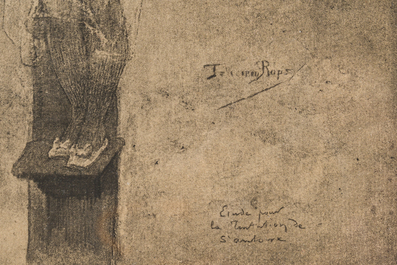 Félicien Rops
Etude pour
La Tentation de
St antoine